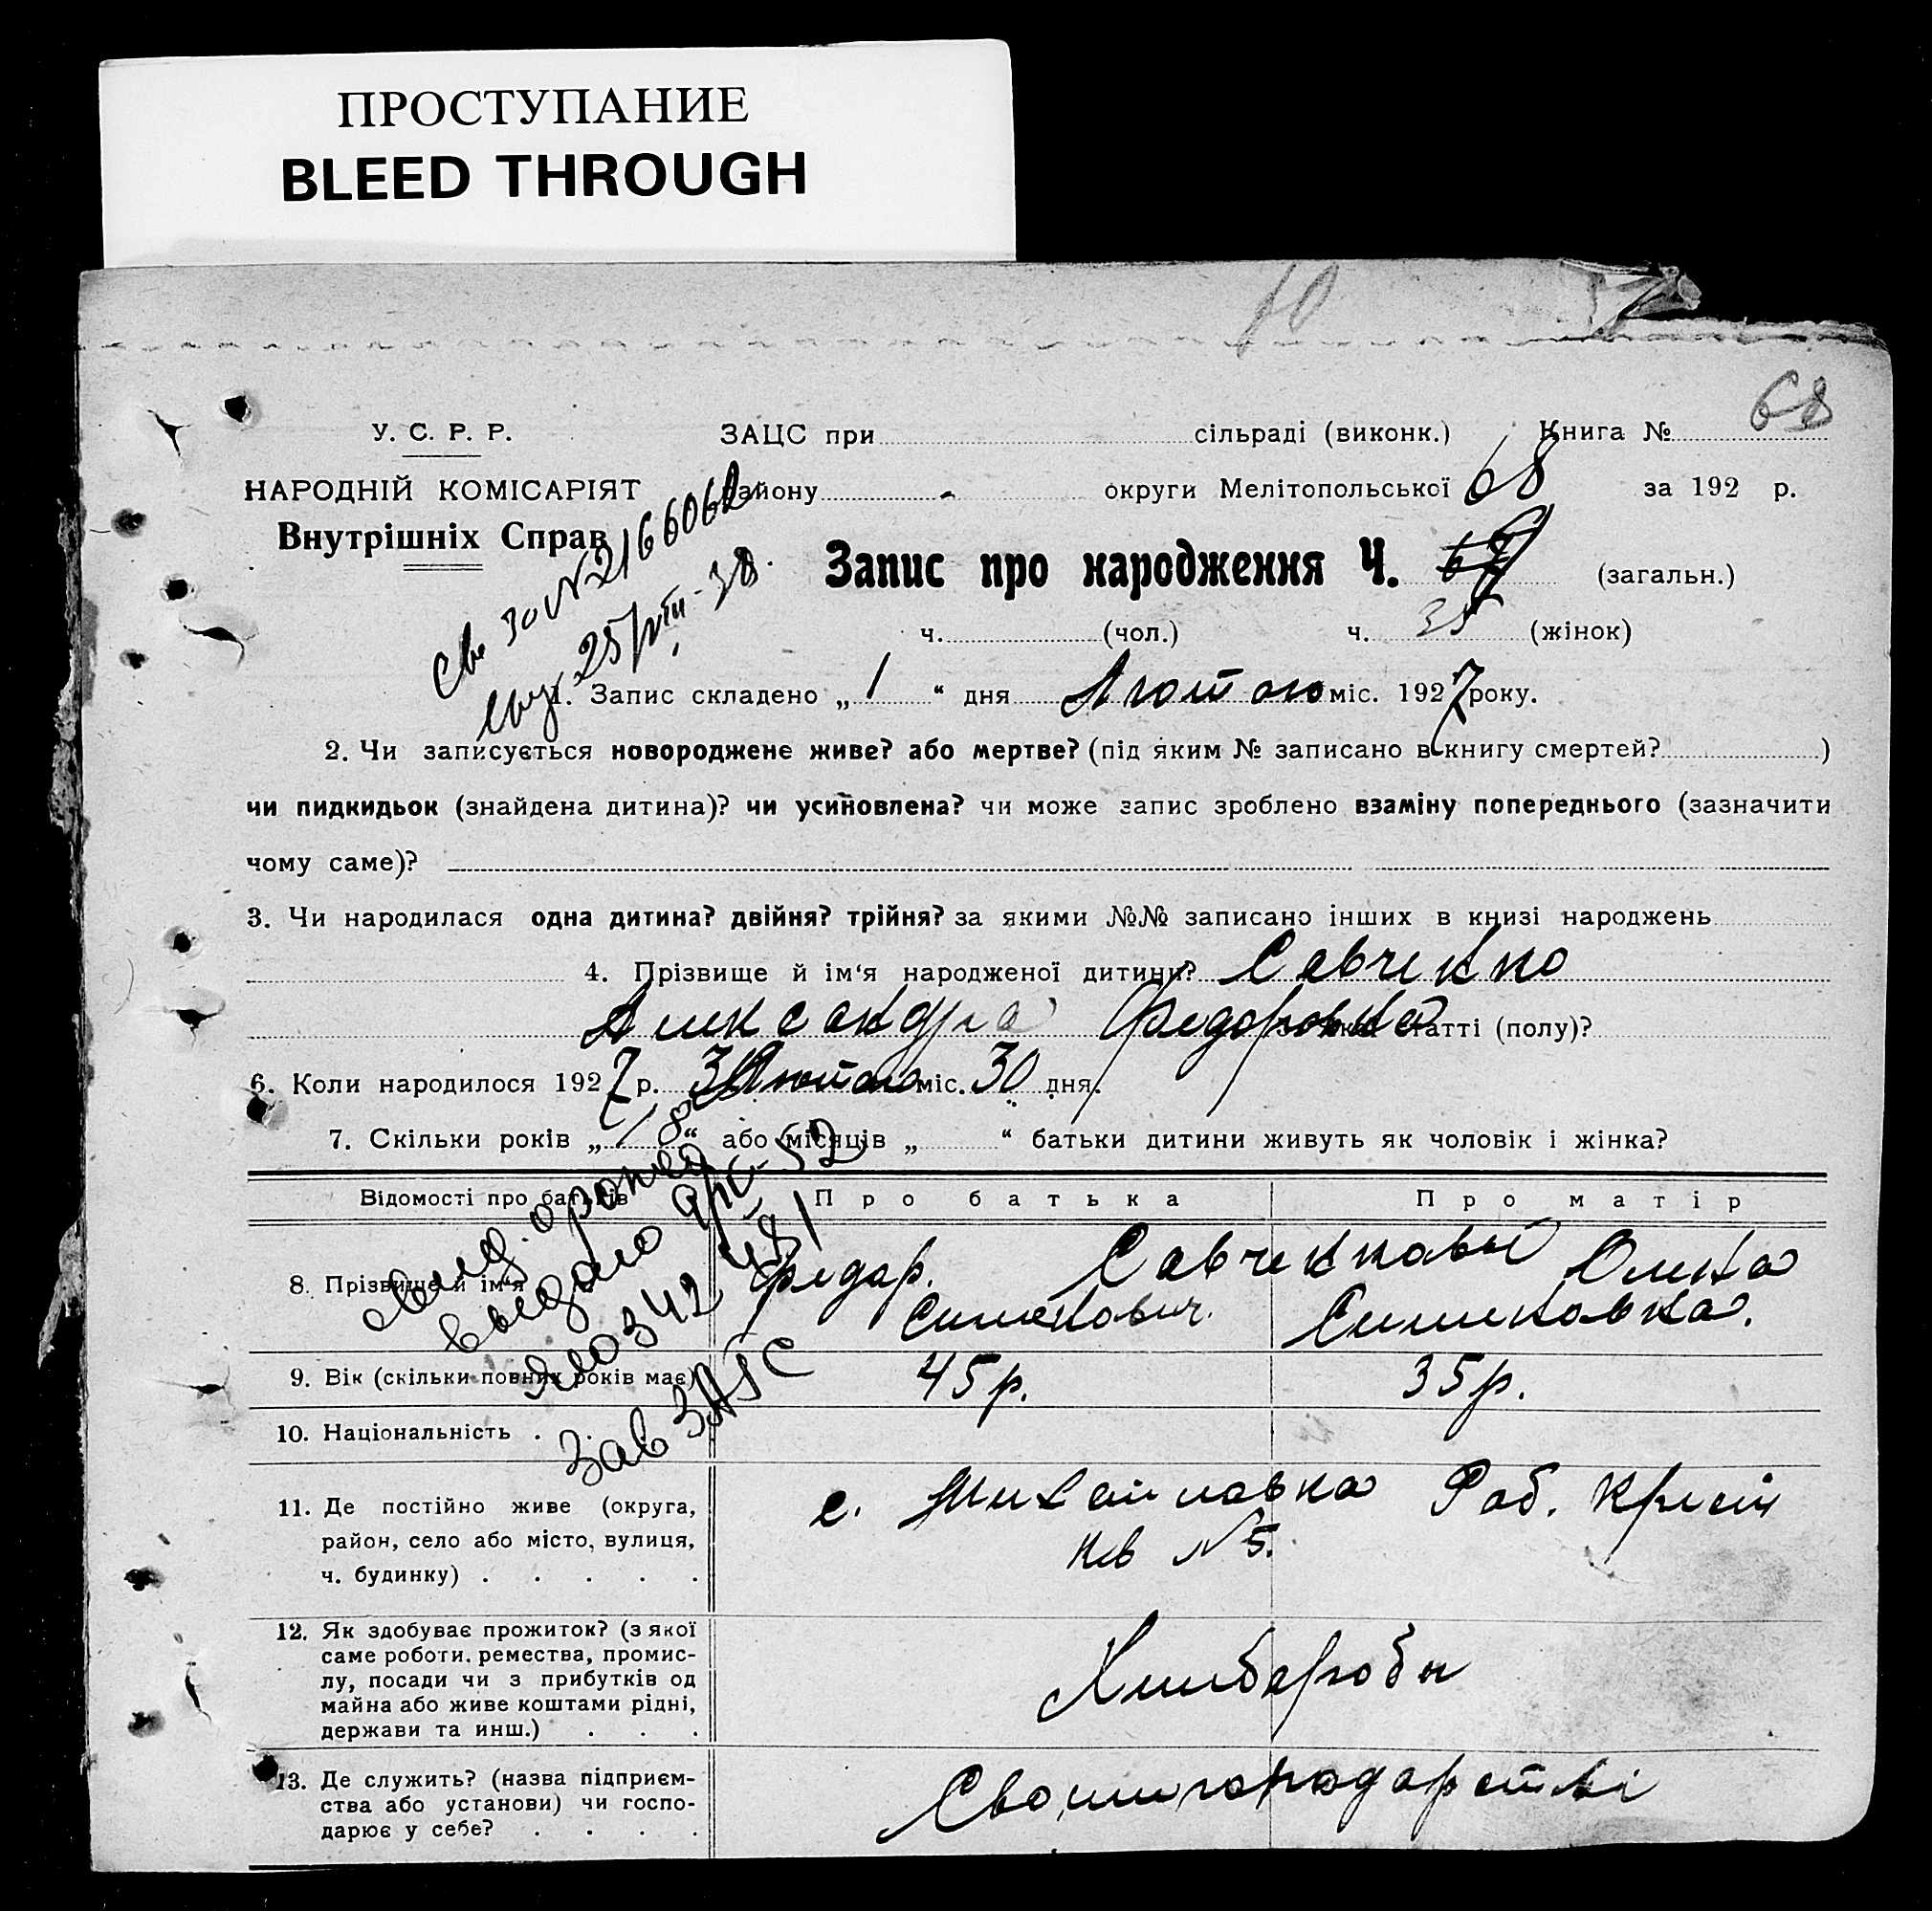 ПРОСТУПАНИЕ
BLEED THROUGH
10
68
У. С. Р. Р.
НАРОДНІЙ КОМІСАРІЯТ
Внутрішніх Справ
ЗАЦС при сільраді (виконк.) Книга №
району - округи Мелітопольської 68 за 192 р.
Запис про народження Ч. 67 (загальн.)
ч. (чол.) ч. 35 (жінок)
Св. за № 2166062
25/VIII-38.
1. Запис складено „ 1 “ дня Лютого міс. 1927 року.
2. Чи записується новороджене живе? або мертве? (під яким № записано в книгу смертей? )
чи пидкидьок (знайдена дитина)? чи усиновлена? чи може запис зроблено взаміну попереднього (зазначити
чому саме)?
3. Чи народилася одна дитина? двійня? трійня? за якими №№ записано інших в книзі народжень
4. Прізвище й ім‘я народженої дитини? Савченко
Александра Федоровна статті (полу)?
6. Коли народилося 1927 р. Лютого міс. 30 дня.
7. Скільки років „ 18 “ або місяців „ “ батьки дитини живуть як чоловік і жінка?
Відомості про батьків
Про батька
Про матір
8. Прізвище й ім‘я
Федар. Савченковы Олена
Сименович. Симиновна.
9. Вік (скільки повних років має)
45 р. 35 р.
10. Національність . .
11. Де постійно живе (округа,
район, село або місто, вулиця,
ч. будинку) . . . . .
с. Михайловка Раб. Крест
кв № 5.
12. Як здобуває прожиток? (з якої
саме роботи, ремества, промис-
лу, посади чи з прибутків од
майна або живе коштами рідні,
держави та инш.) . . .
Хлибаробы
13. Де служить? (назва підприєм-
ства або установи) чи госпо-
дарює у себе? . . . .
Своим господарстві
свид. о рожд
выдано
ЯЮ 0342481
Зав ЗАГС